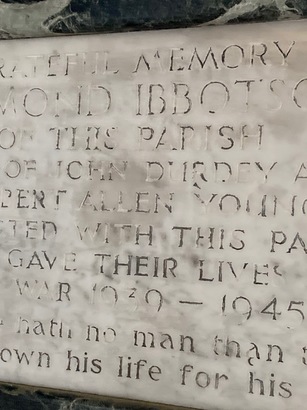 RATEFUL MEMORY
MOND IBBOTSO
OF THIS PARISH
OF JOHN DURDEY A
BERT ALLEN YOUNG
TED WITH THIS PA
GAVE THEIR LIVES
WAR 1939 – 1945
hath no man than t
own his life for his